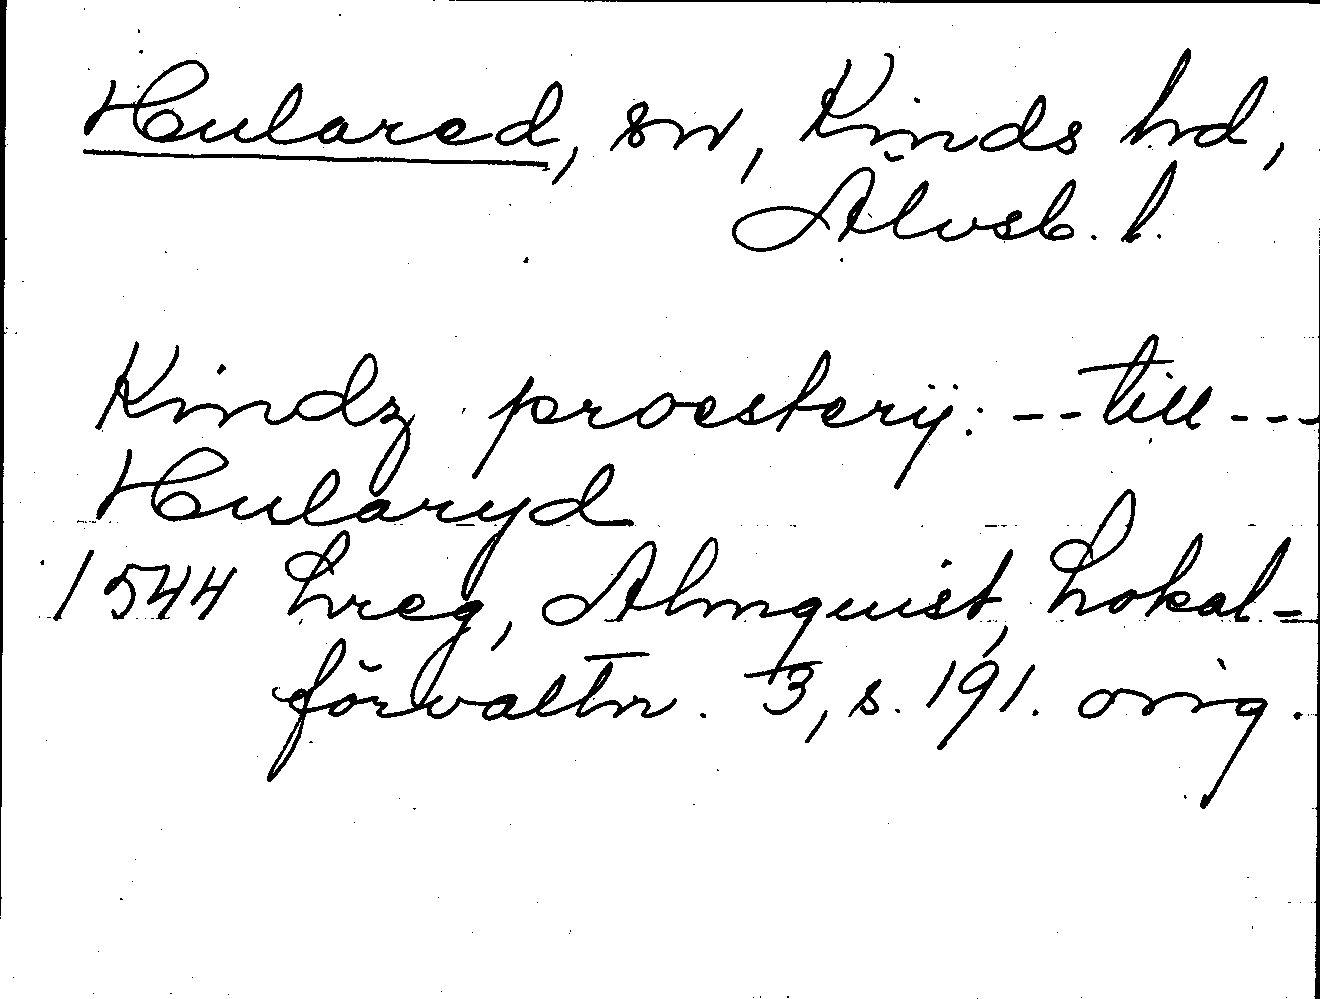 Hulared, sn, Kinds hd,
Älvsb. l.
Kindz proesterij: -- till ---
Hularyd
1544 Lreg, Almquist, Lokal-
förvaltn. 3, s. 191. orig.